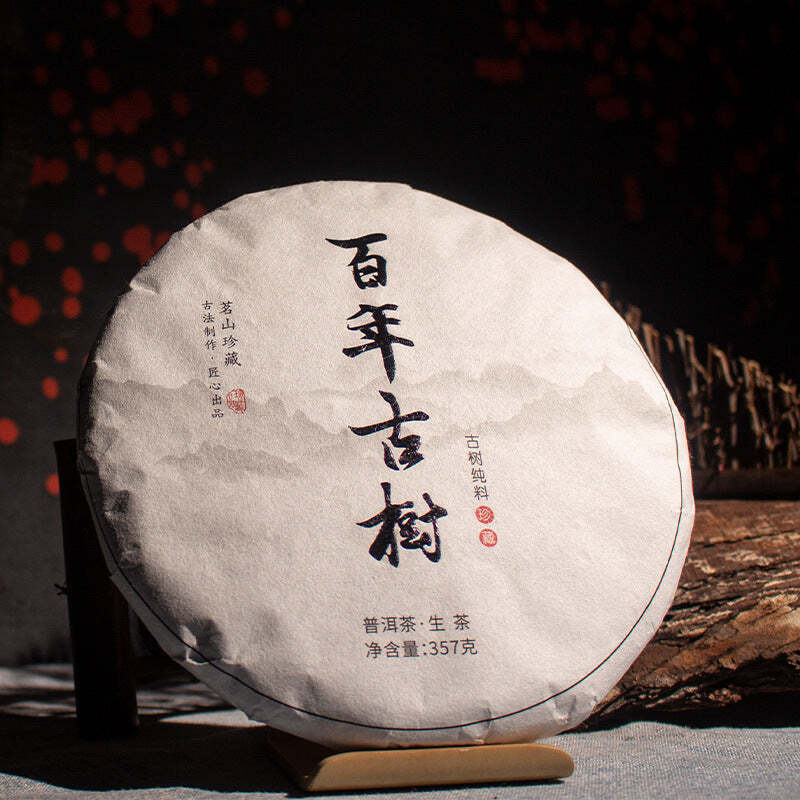 百年古树
茗山珍藏
古法制作·匠心出品
古树纯料
珍藏
普洱茶·生 茶
净含量:357克